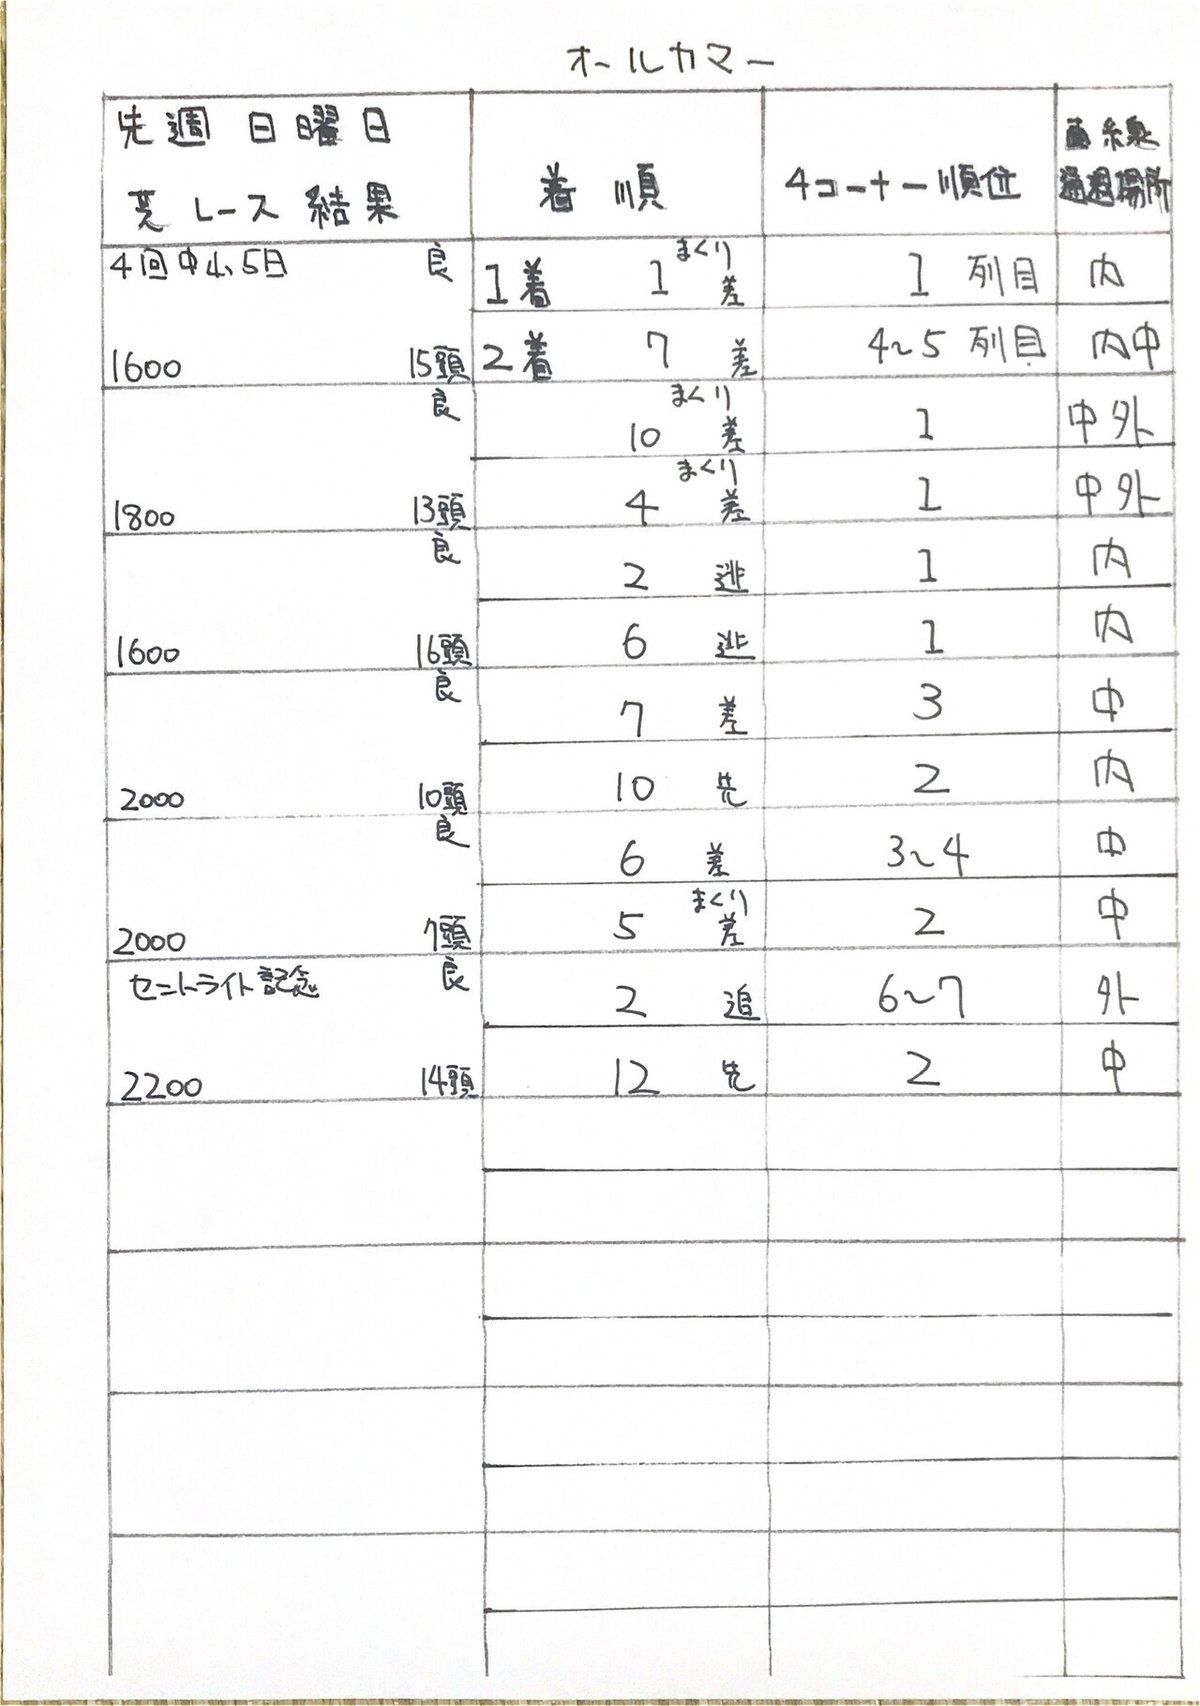 オールカマー
先週 日曜日
芝 レース 結果
着 順
4コーナー順位
直線
通過場所
4回中山5日 良
1600 15頭
1着 1 まくり差 1列目 内
2着 7 差 4~5列目 内中
良
1800 13頭
10 まくり差 1 中外
4 まくり差 1 中外
良
1600 16頭
2 逃 1 内
6 逃 1 内
良
2000 10頭
7 差 3 中
10 先 2 内
良
2000 7頭
6 差 3~4 中
5 まくり差 2 中
セントライト記念 良
2200 14頭
2 追 6~7 外
12 先 2 中